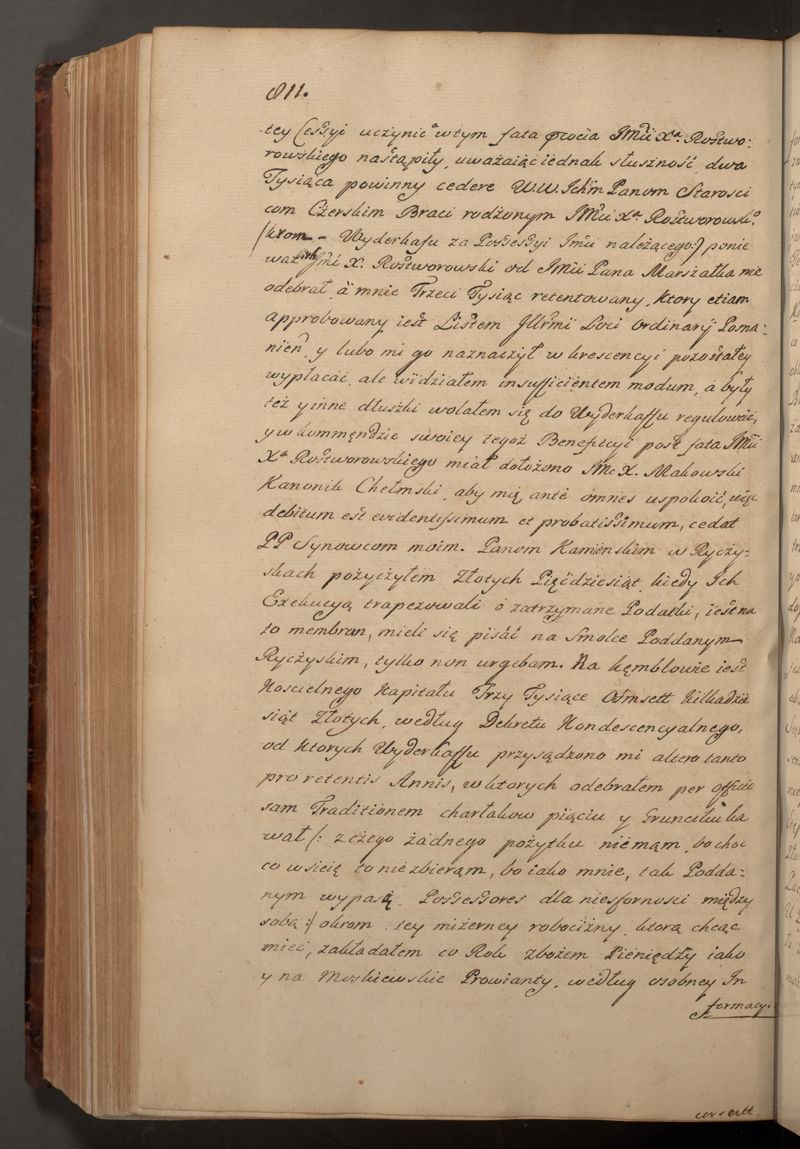 811.
tey Cessyi uczynić a wtym fata Jmci Xa. Rostwo:
rowskiego nastąpiły, uważaiąc iednak słuszność, dwa
Tysiąca powinny cedere W.W. Ichm Panom Starosci
com Czerskim Braci rodzonym JMci Xa. Rostworowski.
/krom - Wyderkafu za Possessyi Jmci należącego:/ ponie
waż Jmć X. Rostworowski od JMci Pana Marszałka nie
odebrał, á mnie Trzeci Tysiąc retentowany, ktory etiam
approbowany iest Listem Jllrmi Loci Ordinarij Posna:
nien, y lubo mi go naznaczył w krescencyi pozostałey
wypłacać, ale widziałem insufficientem modum, á były
też y inne dłuszki wolałem się do Wyderkaffu regulować,
y w kommędzie swoiey tegoż Beneficyi post fata JMci
Xa Rostworowskiego miał dołożono JMc X. Makowski
Kanonik Chełmski, aby mię ante omnes uspokoić, więc
debitum est evidentissimum et probatissimum, cedat
PP Synowcom moim. Panom Kamińskim w Ryczy-
skach pożyczyłem Złotych Pięćdziesiąt, kiedy Ich
Exekucyą trapezowali o zatrzymane Podatki, iest na
to membran, mieli się pisać na Smolce Poddanym
Ryczyskim, tylko non urgebam. Na Kęmblowie iest
Koscielnego Kapitału Trzy Tysiące Osmsett Kilkadzie
siąt Złotych, według Dekretu Kondescencyalnego,
od ktorych Wyderkaffu przysądzono mi altero tanto
pro retentis Annis, w ktorych odebrałem per offici
sam Traditionem chałakow piąciu y Gruncików ka
wał /: z czego żadnego pożytku nie mam, bo choc
co wsieię to nie zbieram, bo iako mnie, tak Podda:
nym wypasą Possessores dla niesfornosci między
sobą :/ okrom tey mizerney robocizny, ktorą chcąc
mieć, zakładałem co Rok zbożem Pieniędzy iako
y na Moskiewskie Prowianty, według osobney In
formacyi